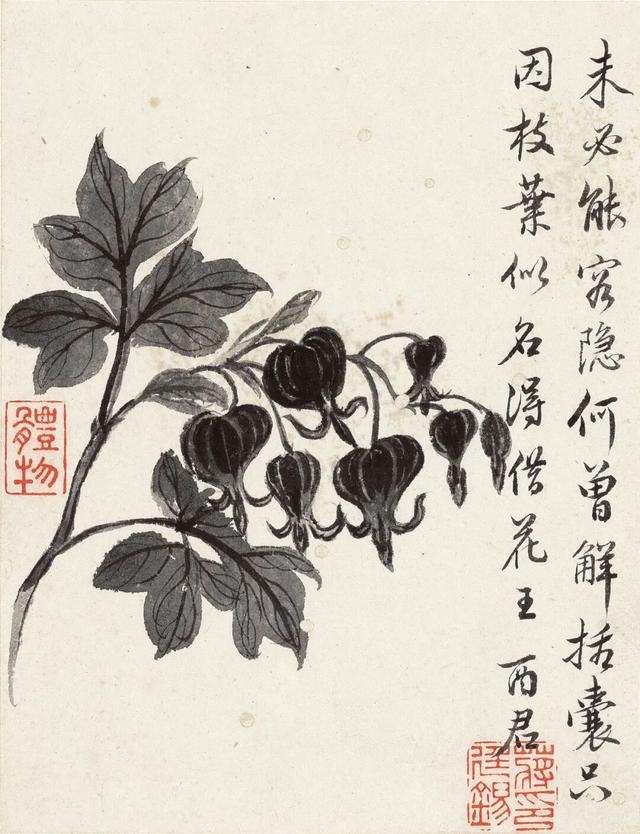 未必能容隐何曾解括囊只
因枝葉似名得借花王 酉君
蔣印
廷錫
體物